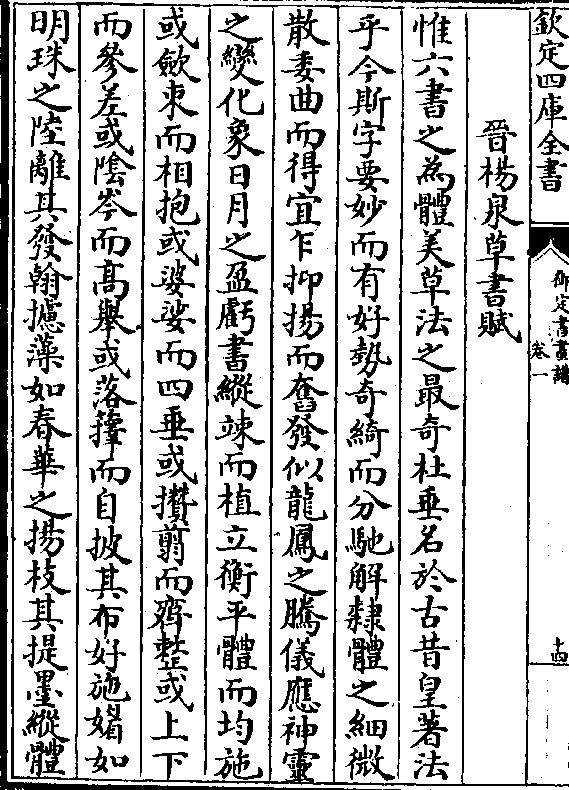 欽定四庫全書
御定書畫譜
卷一
十四
晉楊泉草書賦
惟六書之為體美草法之最奇杜垂名於古昔皇著法
乎今斯字要妙而有好勢奇綺而分馳解隸體之細微
散委曲而得宜乍抑揚而奮發似龍鳳之騰儀應神靈
之變化象日月之盈虧書縱竦而植立衡平體而均施
或斂束而相抱或婆娑而四垂或攢翦而齊整或上下
而參差或陰岑而高舉或落籜而自披其布好施媚如
明珠之陸離其發翰攄藻如春華之揚枝其提墨縱體